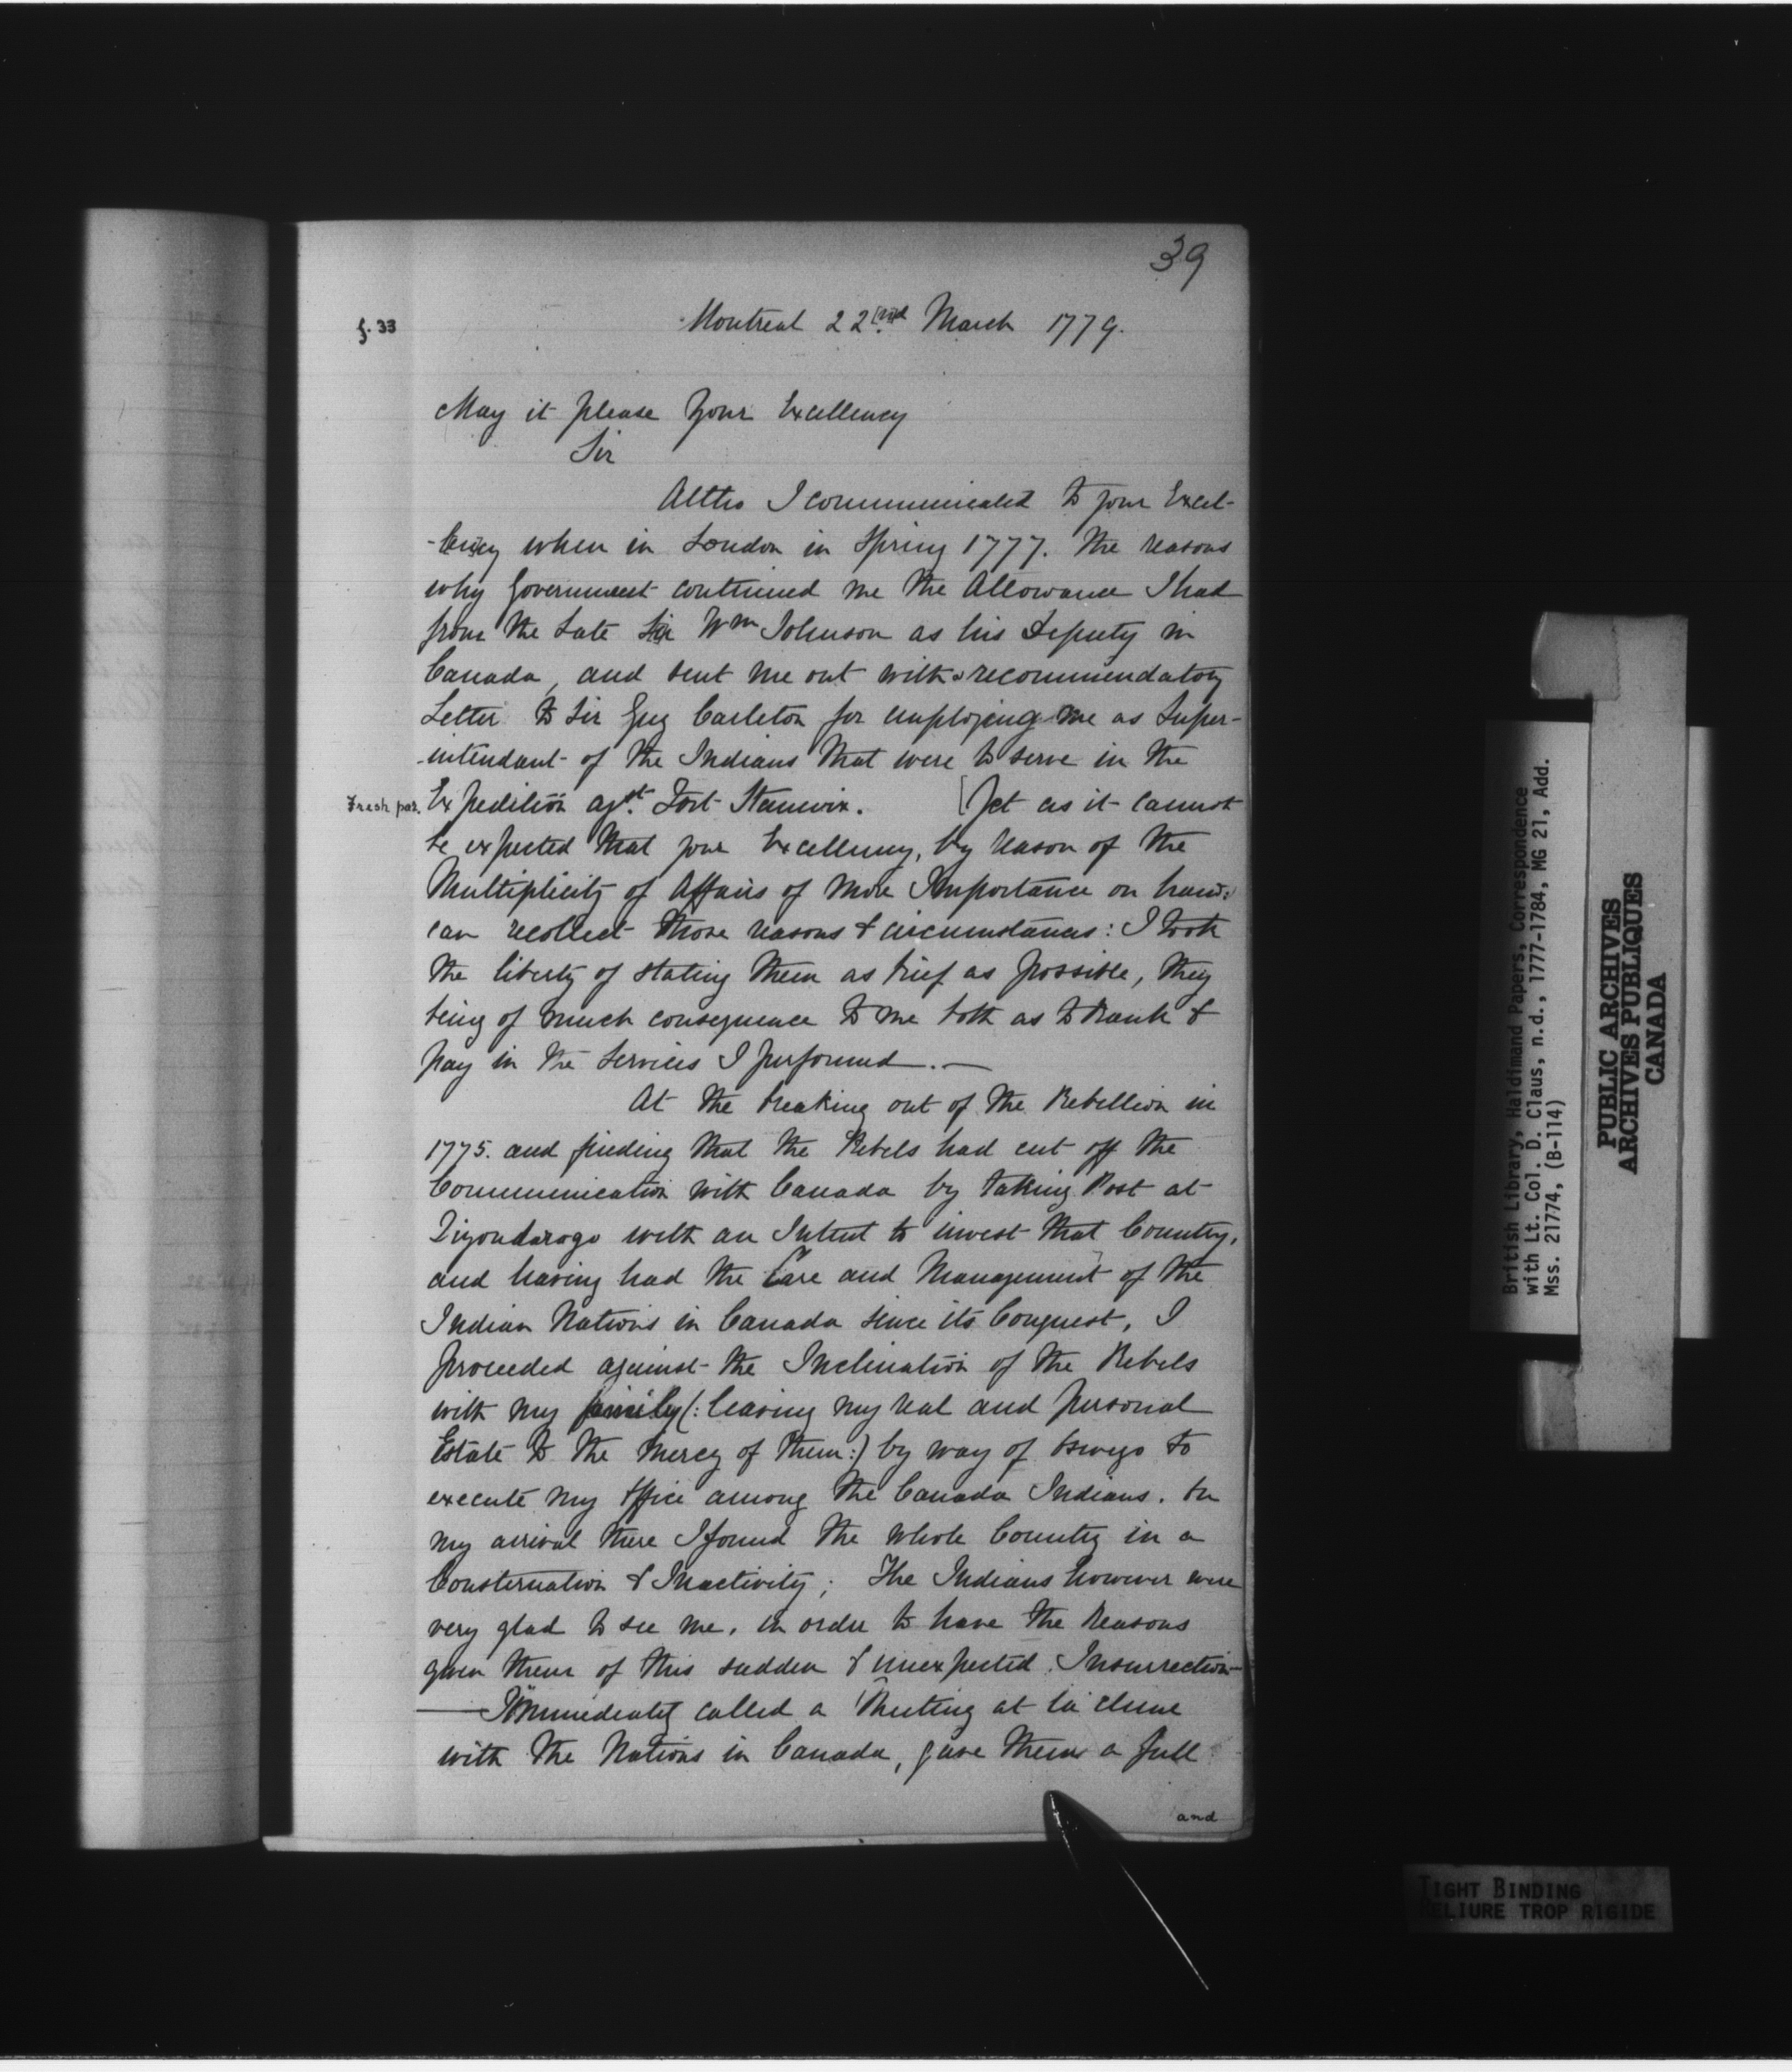 39
f. 33
Montreal 22nd March 1779.
May it please Your Excellency
Sir
Altho I communicated to your Excel-
-lency when in London in Spring 1777. the reasons
why Government continued me the Allowance I had
from the Late Sir Wm Johnson as his Deputy in
Canada, and sent me out with a recommendatory
Letter to Sir Guy Carleton for employing me as Super-
-intendant of the Indians that were to serve in the
Fresh par. Expedition agst. Fort Stanwix. [Yet as it cannot
be expected that your Excellency, by reason of the
Multiplicity of Affairs of more Importance on hand:
can recollect those reasons & circumstances: I took
the liberty of stating them as brief as possible, they
being of much consequence to me both as to Rank &
pay in the Services I performed.—
At the breaking out of the Rebellion in
1775. and finding that the Rebels had cut off the
Communication with Canada by taking Post at
Tiyondarogo with an Intent to invest that Country,
and having had the Care and Management of the
Indian Nations in Canada since its Conquest, I
proceeded against the Inclination of the Rebels
with my family (: leaving my real and personal
Estate to the Mercy of them:) by way of Oswego to
execute my Office among the Canada Indians. On
my arrival there I found the whole Country in a
Consternation & Inactivity; The Indians however were
very glad to see me, in order to have the Reasons
given them of this sudden & unexpected Insurrection—
—I Immediately called a Meeting at la chine
with the Nations in Canada, gave them a full
and
British Library, Haldimand Papers, Correspondence
with Lt. Col. D. Claus, n.d., 1777-1784, MG 21, Add.
Mss. 21774, (B-114)
PUBLIC ARCHIVES
ARCHIVES PUBLIQUES
CANADA
TIGHT BINDING
RELIURE TROP RIGIDE